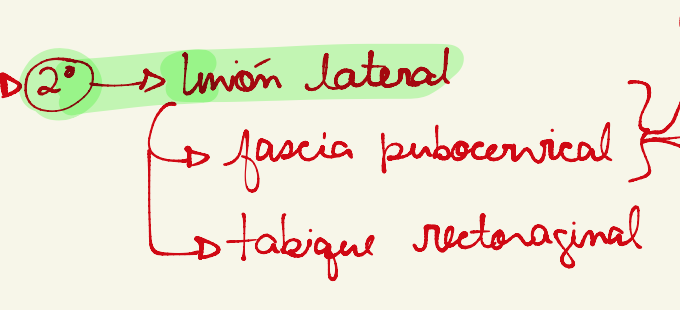 2° → Unión lateral
→ fascia pubocervical
→ tabique rectovaginal